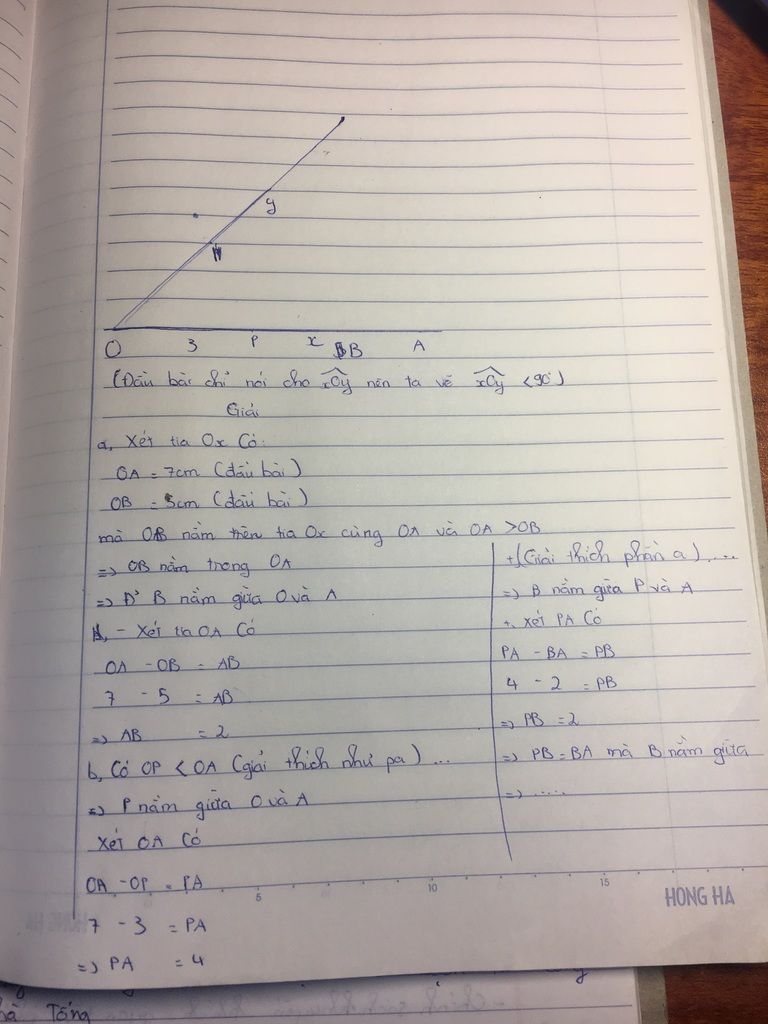 y
O 3 P x B A
(Đầu bài chỉ nói cho xOy nên ta vẽ xOy < 90°)
Giải
a, Xét tia Ox Có:
OA = 7cm (đầu bài)
OB = 5cm (đầu bài)
mà OB nằm trên tia Ox cùng OA và OA > OB
=> OB nằm trong OA
=> Đ' B nằm giữa O và A
- Xét tia OA Có
OA - OB = AB
7 - 5 = AB
=> AB = 2
b, Có OP < OA (giải thích như pa) ...
=> P nằm giữa O và A
Xét OA Có
OA - OP = PA
7 - 3 = PA
=> PA = 4
+, (Giải thích phần a) ....
=> B nằm giữa P và A
+, Xét PA Có
PA - BA = PB
4 - 2 = PB
=> PB = 2
=> PB = BA mà B nằm giữa
=> .....
5 10 15
HONG HA
Tống